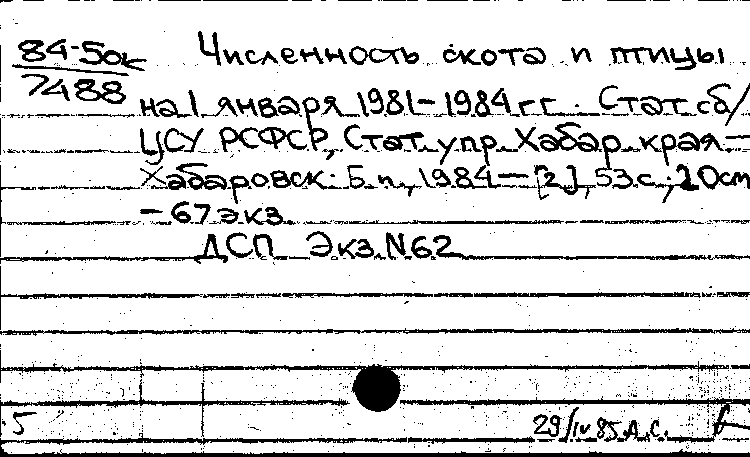 84-5ок Численность скота и птицы
7488
на 1 января 1981-1984 гг. Стат. сб/
ЦСУ РСФСР, Стат. упр. Хабар. края.—
Хабаровск: Б.и., 1984— [2], 53 с.; 20 см
- 67 экз.
ДСП Экз. N62
5
29/IV 85 А.С.